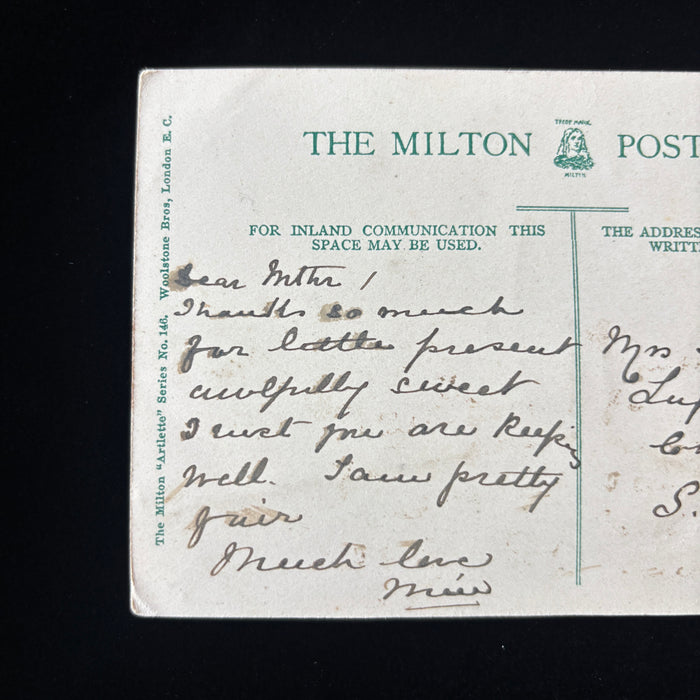 The Milton "Artlette" Series No. 146. Woolstone Bros, London E. C.
THE MILTON
TRADE MARK
MILTON
POST
FOR INLAND COMMUNICATION THIS
SPACE MAY BE USED.
THE ADDRES
WRITT
Dear
Thanks so much
for little present
awfully sweet
I trust you are keeping
well. I am pretty
fair
Much love
Mrs
S.